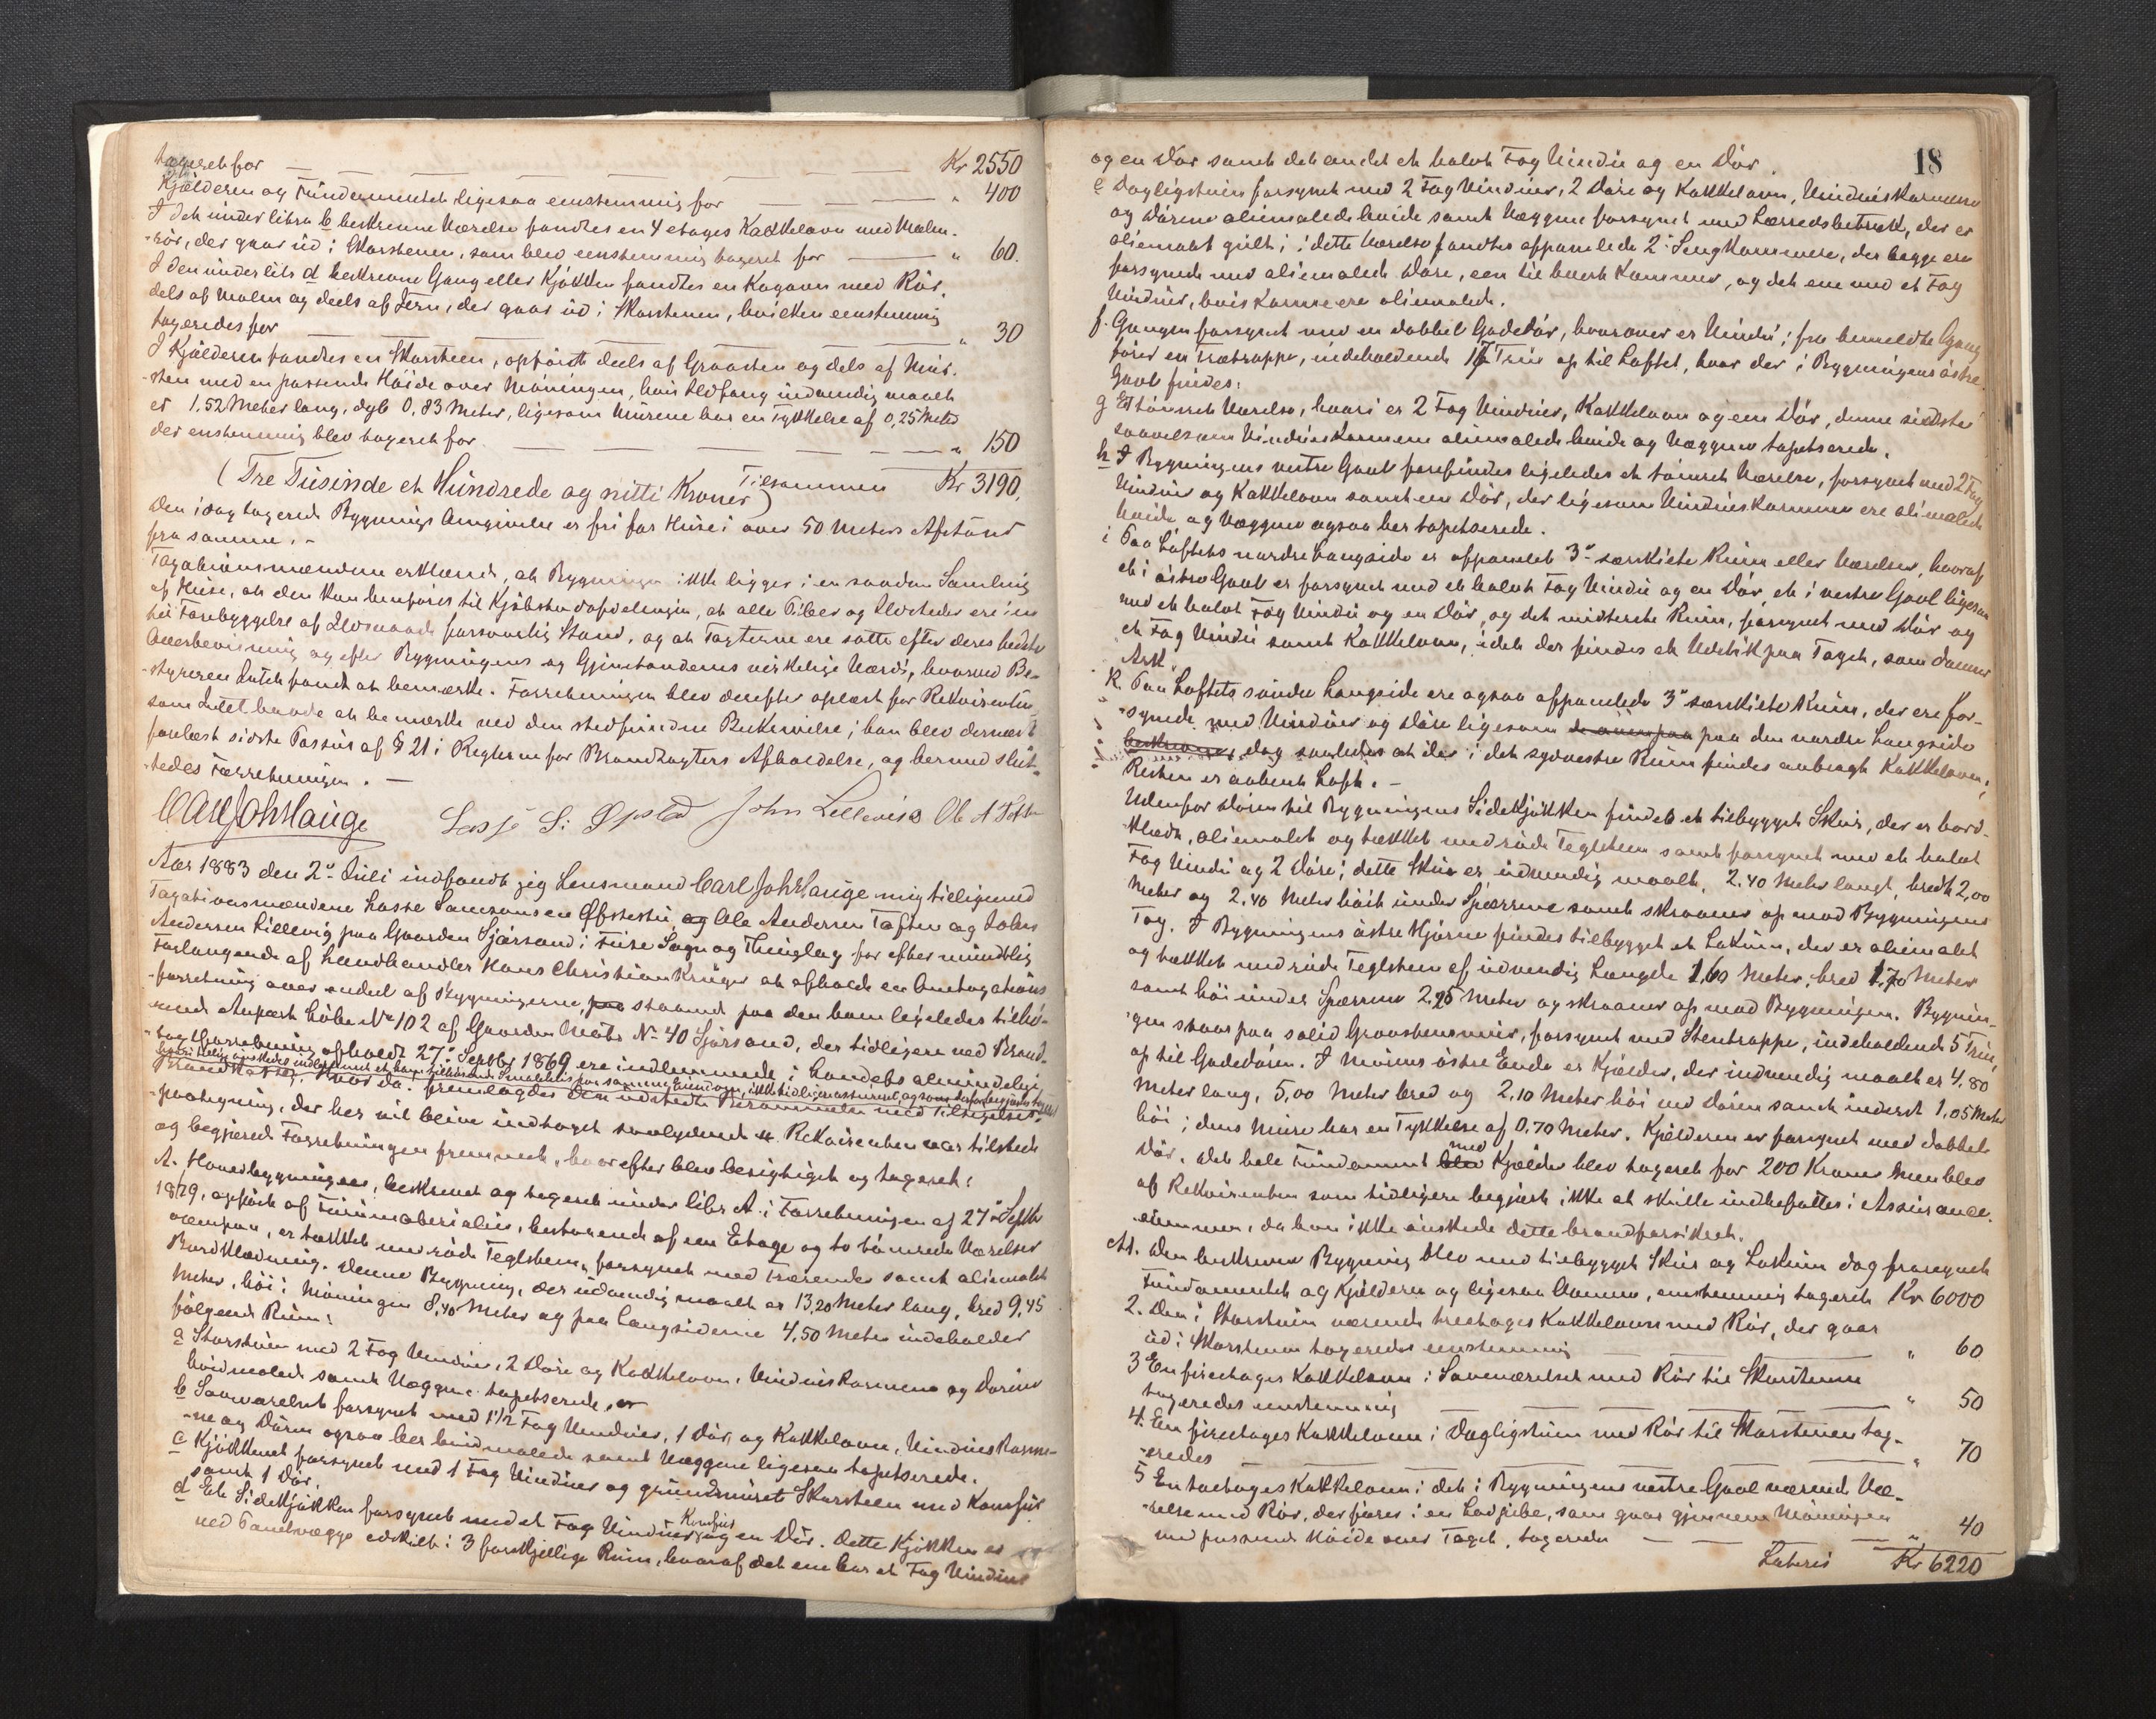 tagseret for — — — — — — Kr 2550
Kjælderen og Fundamentet ligesaa eenstemmig for — — — " 400
I det under litra b beskrevne Værelse fandtes en 4 etages Kakkelovn med Malm-
-rör, der gaar ud i Skorstenen, som blev eenstemmig taxeret for — " 60.
I den under litr d beskrevne Gang eller Kjökken fandtes en Kogeovn med Rör,
dels af Malm og deels af Jern, der gaar ud i Skorstenen, hvilken eenstemmig
taxeredes for — — — — — — " 30
I Kjælderen fandtes en Skorsteen, opfördt deels af Graasten og dels af Mur-
-sten med en passende Höide over Möningen, hvis Ildfang indvendig maalt
er 1.52 Meter lang, dyb 0,83 Meter, ligesom Murene har en Tykkelse af 0,25 Meter
der enstemmig blev taxeret for — — — — — " 150
Tilsammen Kr 3190,
(Tre Tusinde et Hundrede og nitti Kroner)
Den idag taxerede Bygnings Omgivelse er fri for Huse i over 50 Meters Afstand
fra samme. -
Taxationsmændene erklærede, at Bygningen ikke ligger i en saadan Samling
af Huse, at den kan henföres til Kjöbstadafdelingen, at alle Piber og Ildsteder ere i en
til Forebyggelse af Ildsvaade forsvarlig Stand, og at Taxterne ere satte efter deres bedste
Overbeviisning og efter Bygningens og Gjenstandens virkelige Værdi, hvorved Be-
-styreren Intet fandt at bemærke. Forretningen blev derefter oplæst for Rekvirenten,
som Intet havde at bemærke ved den stedfundne Beskrivelse; han blev dernæst
forelæst sidste Passus af § 21 i Reglerne for Brandtaxters Afholdelse, og hermed slut-
-tedes Forretningen. —
Carl Joh Hauge Lasse S. Opsted John Lillevik Ole A Toften
Aar 1883 den 2den Juli indfandt jeg Lensmand Carl Joh Hauge mig tilligemed
Taxationsmændene Lasse Samsonsen Opstestu og Ole Andersen Toften og Johns
Andersen Lillevig paa Gaarden Sjörsand i Fure Sogn og Thinglag for efter mundtlig
Forlangende af Landhandler Hans Christian Kruger at afholde en Omtaxations
-forretning over endeel af Bygningerne, paa staaende paa den ham ligeledes tilhö-
-rende Anpart Löbe No 102 af Gaarden Matr No 40 Sjörsand, der tidligere ved Brand-
-taxtforretning afholdt 27de Septbr 1869 ere indlemmede i Landets almindelige
Brandkasse. Hvorda: fremlagdes den udstedte Berammelse med Tilsigelses-
-paategning, der her vil blive indtaget saalydende #. Rekvirenten var tilstede
og begjærede Forretningen fremmet, hvorefter blev besigtiget og taxeret:
A. Hovedbygningen, beskrevet og taxeret under litr A. i Forretningen af 27de Septbr
1879, opfört af Tömmermaterialier, bestaaende af een Etage og to tömrede Værelser
ovenpaa, er tækket med röde Teglsteen, forsynet med Tagrender samt oliemalet
Bordklædning. Denne Bygning, der udvendig maalt er 13,20 Meter lang, bred 9,45
Meter, höi i Möningen 8,40 Meter og paa Langsiderne 4,50 Meter indeholder
fölgende Rum:
a Storstuen med 2 Fag Vinduer, 2 Döre og Kakkelovn, Vindueskarmene og Dörene
hvidmalede samt Væggene tapetserede.
b Soveværelset forsynet med 1 1/2 Fag Vinduer, 1 Dör, og Kakkelovn, Vindueskarme-
-ne og Dören ogsaa her hvidmalede samt Væggene ligesaa tapetserede.
c Kjökkenet forsynet med 1 Fag Vinduer og grundmuret Skorsteen med Komfur
samt 1 Dör.
d Et Sidekjökken forsynet med et Fag Vinduer, Komfur og en Dör. Dette Kjökken er
ved Panelvægge adskilt i 3 forskjellige Rum, hvoraf det ene har et Fag Vindue
18
og en Dör samt det andet et halvt Fag Vindu og en Dör.
e Dagligstuen forsynet med 2 Fag Vinduer, 2 Döre og Kakkelovn, Vindueskarmene
og Dörene oliemalede hvide samt Væggene forsynet med Lærredsbetræk, der er
oliemalet gult; i dette Værelse fandtes afpanelede 2de Sengkammere, der begge ere
forsynede med oliemalede Döre, een til hvert Kammer, og det ene med et Fag
Vinduer, hvis Karme ere oliemalede.
f. Gangen forsynet med en dobbel Gadedör, hvorover er Vindu; fra bemeldte Gang
förer en Trætrappe, indeholdende 17 Trin op til Loftet, hvor der i Bygningens östre
Gavl findes:
g Et tömret Værelse, hvori er 2 Fag Vinduer, Kakkelovn og een Dör, denne sidste
saavelsom Vindueskarmene oliemalede hvide og Væggene tapetserede.
h I Bygningens vestre Gavl forefindes ligeledes et tömret Værelse, forsynet med 2 Fag
Vinduer og Kakkelovn samt een Dör, der ligesom Vindueskarmene ere oliemalede
hvide og Væggene ogsaa her tapetserede.
i Paa Loftets nordre Langside er afpanelet 3de særskilte Rum eller Værelser, hvoraf
et i östre Gavl er forsynet med et halvt Fag Vindu og en Dör, et i vestre Gavl ligesaa
med et halvt Fag Vindu og en Dör, og det midterste Rum, forsynet med Dör og
et Fag Vindu samt Kakkelovn, idet der findes et Udstik paa Taget, som danner
Ark.
k. Paa Loftets söndre Langside ere ogsaa afpanelede 3de særskilte Rum, der ere for-
-synede med Vinduer og Döre ligesom de ovenpaa paa den nordre Langside
beskrevne, dog saaledes at der i det sydvestre Rum findes anbragt Kakkelovn.
Resten er aabent Loft. -
Udenfor Dören til Bygningens Sidekjökken findes et tilbygget Skur, der er bord-
klædt, oliemalet og tækket med röde Teglsteen samt forsynet med et halvt
Fag Vindu og 2 Döre; dette Skur er udvendig maalt 2,40 Meter langt, bredt 2,00
Meter og 2,40 Meter höit under Spærrene samt skraaner op mod Bygningens
Tag. I Bygningens östre Hjörne findes tilbygget et Lokum, der er oliemalet
og tækket med röde Teglsteen af udvendig Længde 1,60 Meter, bred 1,70 Meter
samt höi under Spærrene 2,25 Meter og skraaner op mod Bygningen. Bygnin-
-gen staar paa solid Graastensmur, forsynet med Stentrappe, indeholdende 5 Trin,
op til Gadedören. I Murens östre Ende er Kjælder, der indvendig maalt er 4,80
Meter lang, 5,00 Meter bred og 2,10 Meter höi ved Dören samt inderst 1,05 Meter
höi; dens Mure har en Tykkelse af 0.70 Meter. Kjælderen er forsynet med dobbelt
Dör. Det hele Fundament blev med Kjælder blev taxeret for 200 Kroner men blev
af Rekvirenten som tidligere begjært ikke at skulle indbefattes i Assurance-
-summen, da han ikke önskede dette brandforsikret.
A1. Den beskrevne Bygning blev med tilbygget Skur og Lokum dog fraregnet
Fundamentet og Kjælderen og ligesaa Ovnene, eenstemmig taxeret Kr 6000
2. Den i Storstuen værende treetages Kakkelovn med Rör, der gaar
ud i Skorstenen taxeredes eenstemmig — — " 60
3 En fireetages Kakkelovn i Soveværelset med Rör til Skorstenen
taxeredes eenstemmig — — — — " 50
4. En fireetages Kakkelovn i Dagligstuen med Rör til Skorstenen tax-
-eredes — — — — " 70
5 En toetages Kakkelovn i det i Bygningens vestre Gavl værende Væ-
-relse med Rör, der föres i en Lodpibe, som gaar gjennem Möningen
med passende Höide over Taget, taxeredes — — " 40
Lateris Kr 6220